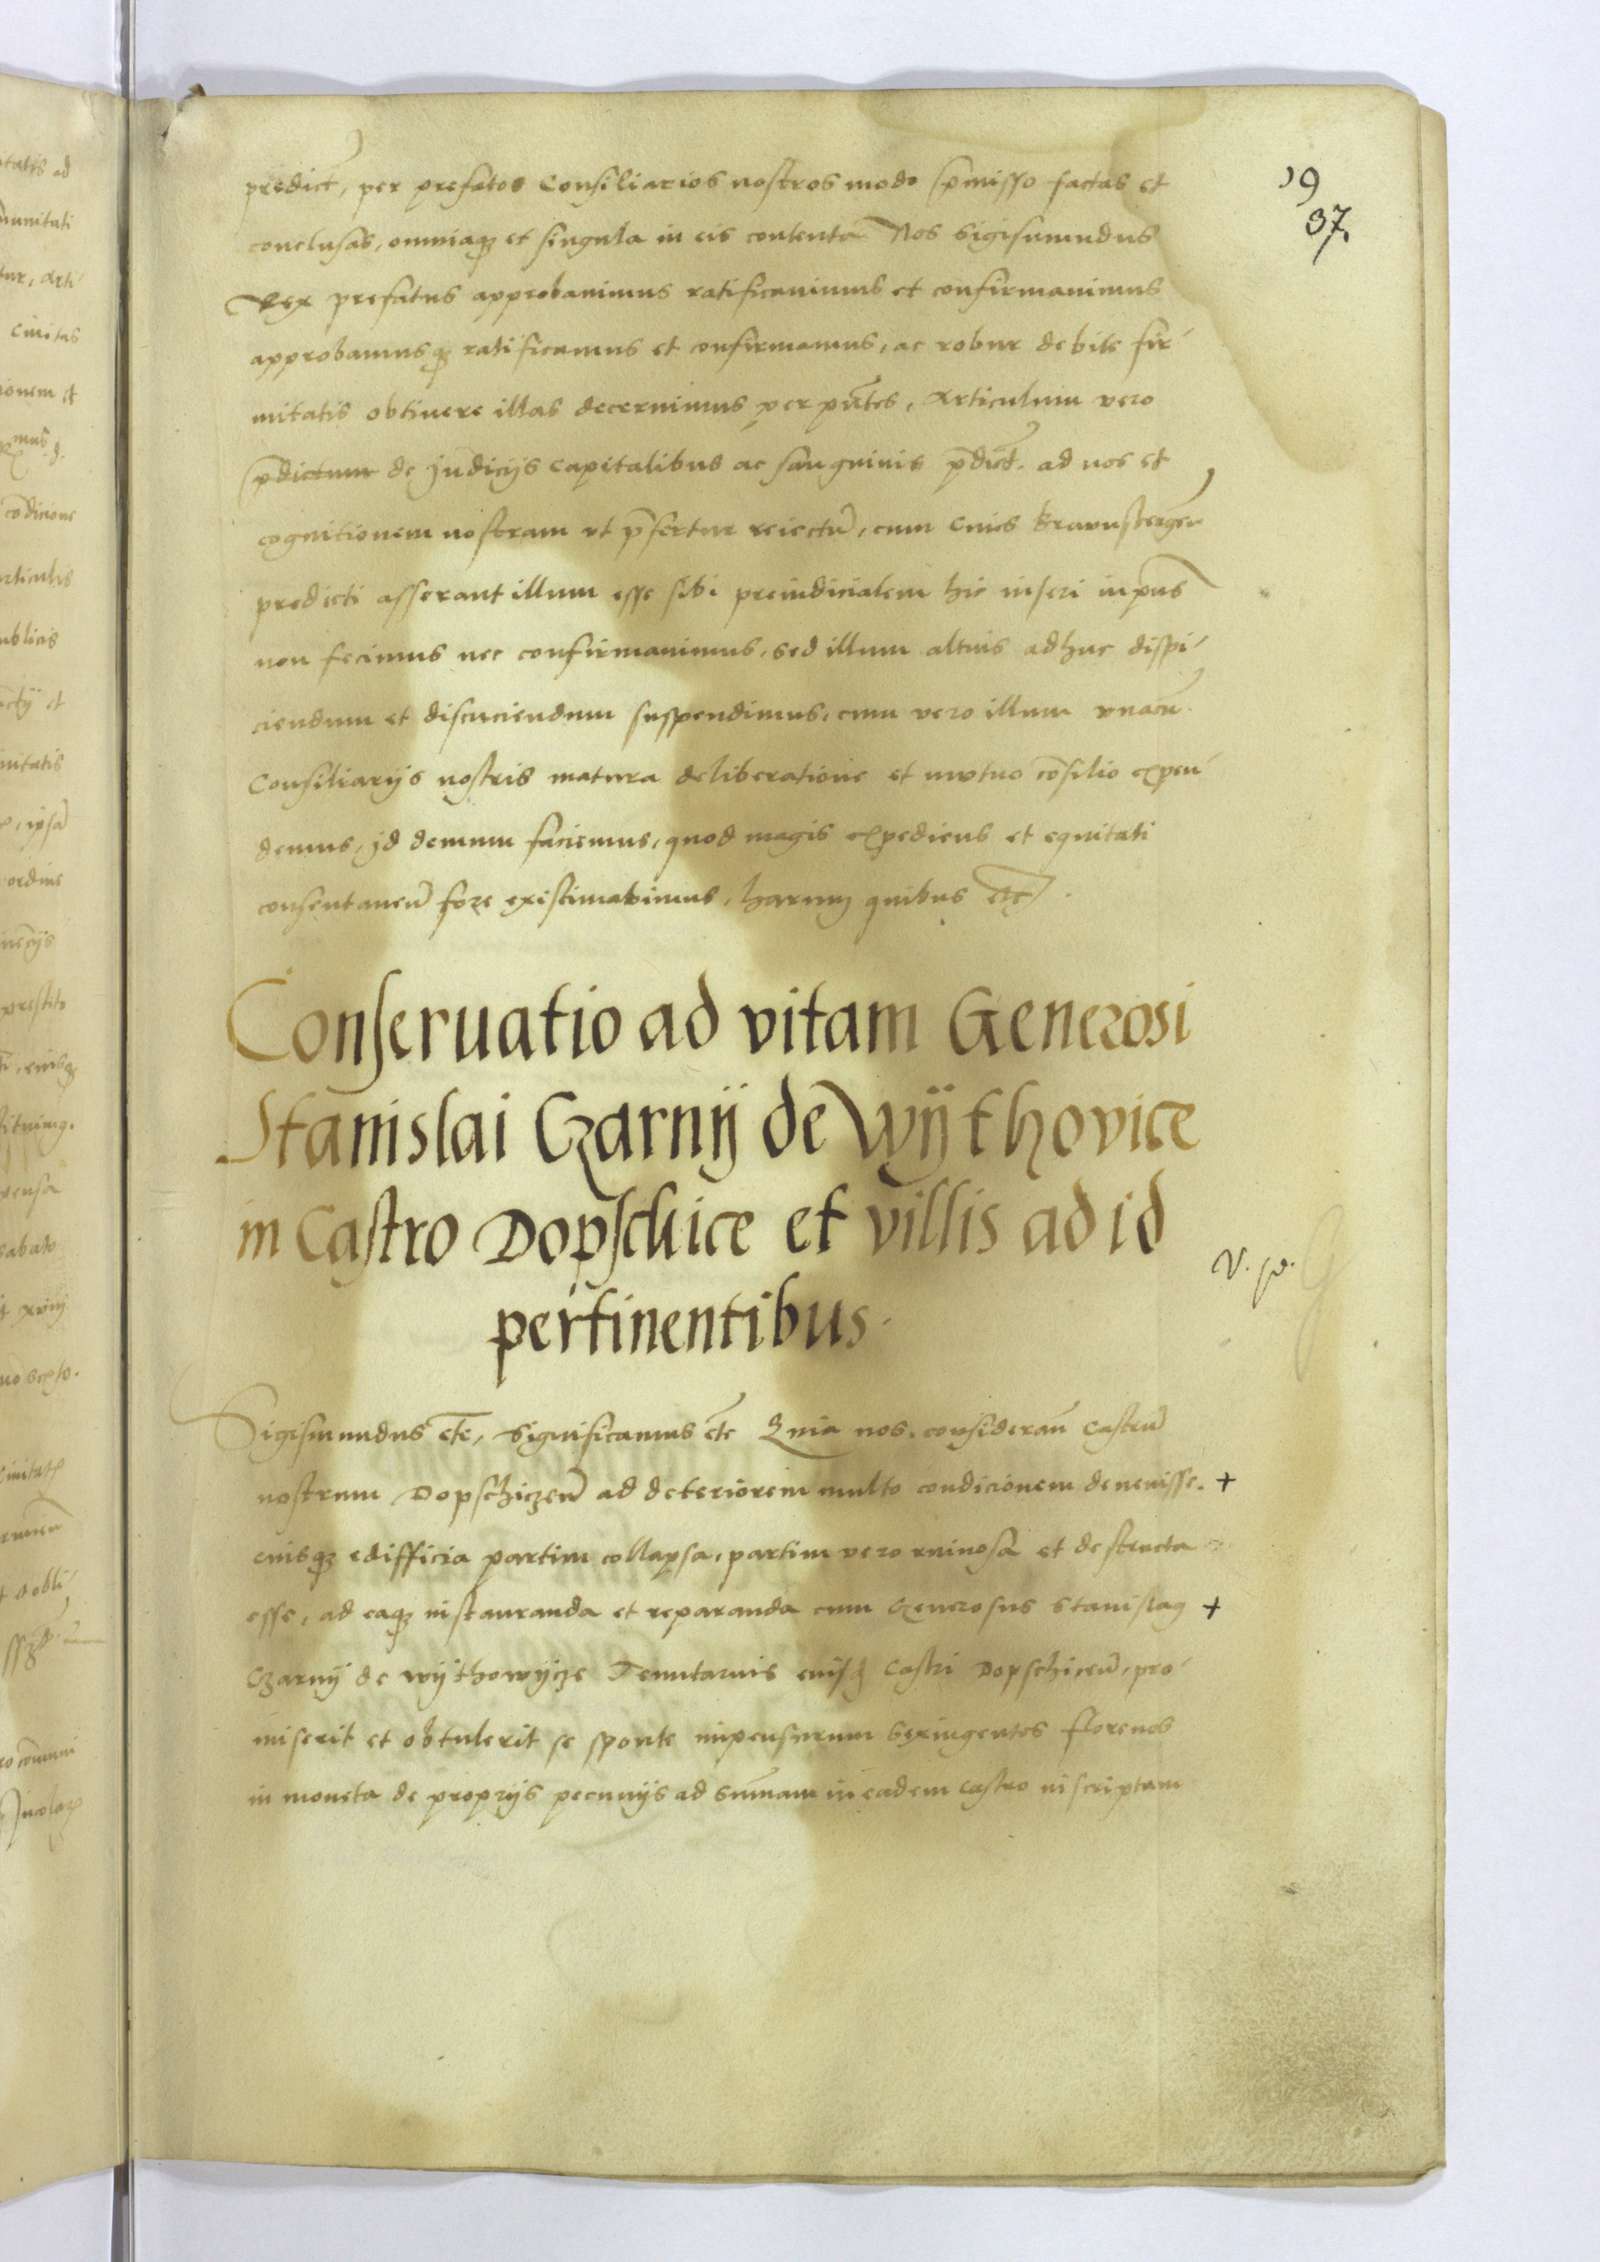 19
37.
predict̄, per prefatos Consiliarios nostros modo p̄misso factas et
conclusas, omniaqȝ et singula in eis contenta Nos Sigismundus
Rex prefatus approbauimus ratificauimus et confirmauimus
approbamusqȝ ratificamus et confirmamus, ac robur debite fir-
mitatis obtinere illas decernimus per pn̄tes, Articulum vero
p̄dictum de Judicijs capitalibus ac sanguinis p̄dict̄. ad nos et
cognitionem nostram vt p̄fertur reiectū, cum Ciues
predicti asserant illum esse sibi preiudicialem hic inseri in pn̄s
non fecimus nec confirmauimus, sed illum altius adhuc dispi-
ciendum et discuciendum suspendimus, cum vero illum vnacū
Consiliarijs nostris matura deliberatione et mutuo cōsilio expen-
demus, id demum faciemus, quod magis expediens et equitati
consentaneū fore existimabimus, harum quibus etc̄.
Conseruatio ad vitam Generosi
Stanislai Czarnij de Wijthovice
in Castro Dopschice et villis ad id
pertinentibus.
V. p.
Sigismundus etc̄, Significamus etc̄ Quia nos, considerān Castrū
nostrum Dopschiczen̄ ad deteriorem multo condicionem deuenisse. +
eiusqȝ edifficia partim collapsa, partim vero ruinosa et destructa
esse, ad eaqȝ instauranda et reparanda cum Generosus Stanislaus +
Czarnij de Wijthowijcze Tenutarius eiusd̄ Castri Dopschicen̄, pro-
miserit et obtulerit se sponte impensurum Sexingentos florenos
in moneta de proprijs pecunijs ad Sum̄am in eadem Castro inscriptam